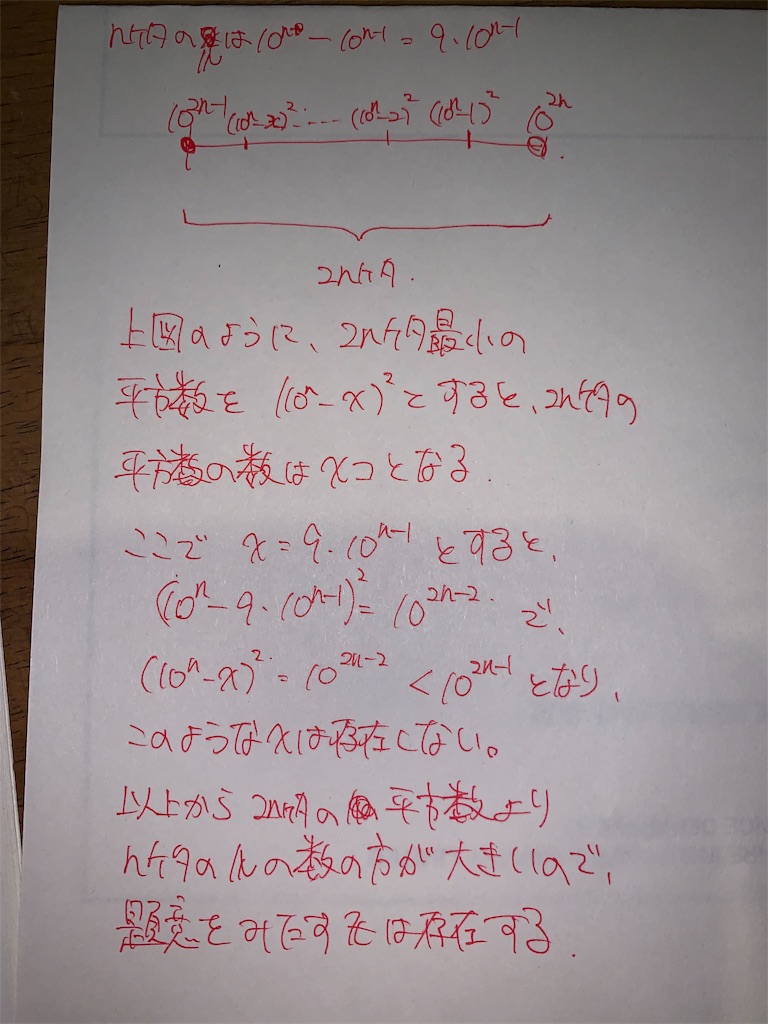 nケタのkは10^n - 10^{n-1} = 9・10^{n-1}
10^{2n-1} (10^n-x)^2 ・・・・ (10^n-2)^2 (10^n-1)^2 10^{2n}
2nケタ.
上図のように、2nケタ最小の
平方数を (10^n - x)^2 とすると、2nケタの
平方数の数はxコとなる.
ここで x = 9・10^{n-1} とすると、
(10^n - 9・10^{n-1})^2 = 10^{2n-2} で、
(10^n-x)^2 = 10^{2n-2} < 10^{2n-1} となり、
このようなxは存在しない。
以上から 2nケタの 平方数より
nケタのkの数の方が大きいので、
題意をみたすkは存在する.